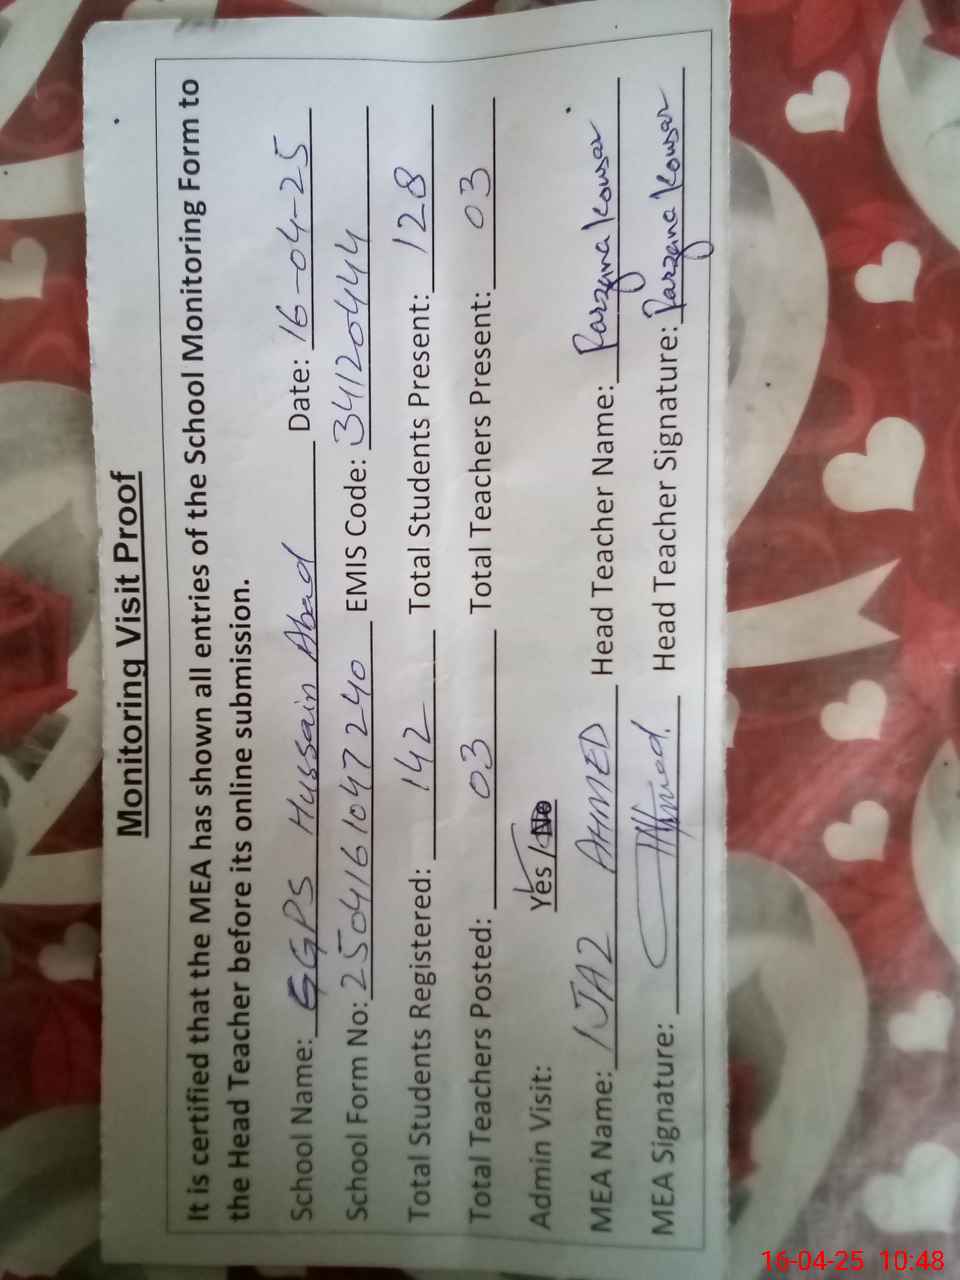 Monitoring Visit Proof
It is certified that the MEA has shown all entries of the School Monitoring Form to
the Head Teacher before its online submission.
School Name: GGPS Hussain Abad Date: 16-04-25
School Form No: 2504161047240 EMIS Code: 34120444
Total Students Registered: 142 Total Students Present: 128
Total Teachers Posted: 03 Total Teachers Present: 03
Admin Visit: Yes/No
MEA Name: IJAZ AHMED Head Teacher Name: Farzana Kousar
MEA Signature: Ahmed. Head Teacher Signature: Farzana Kousar
16-04-25 10:48